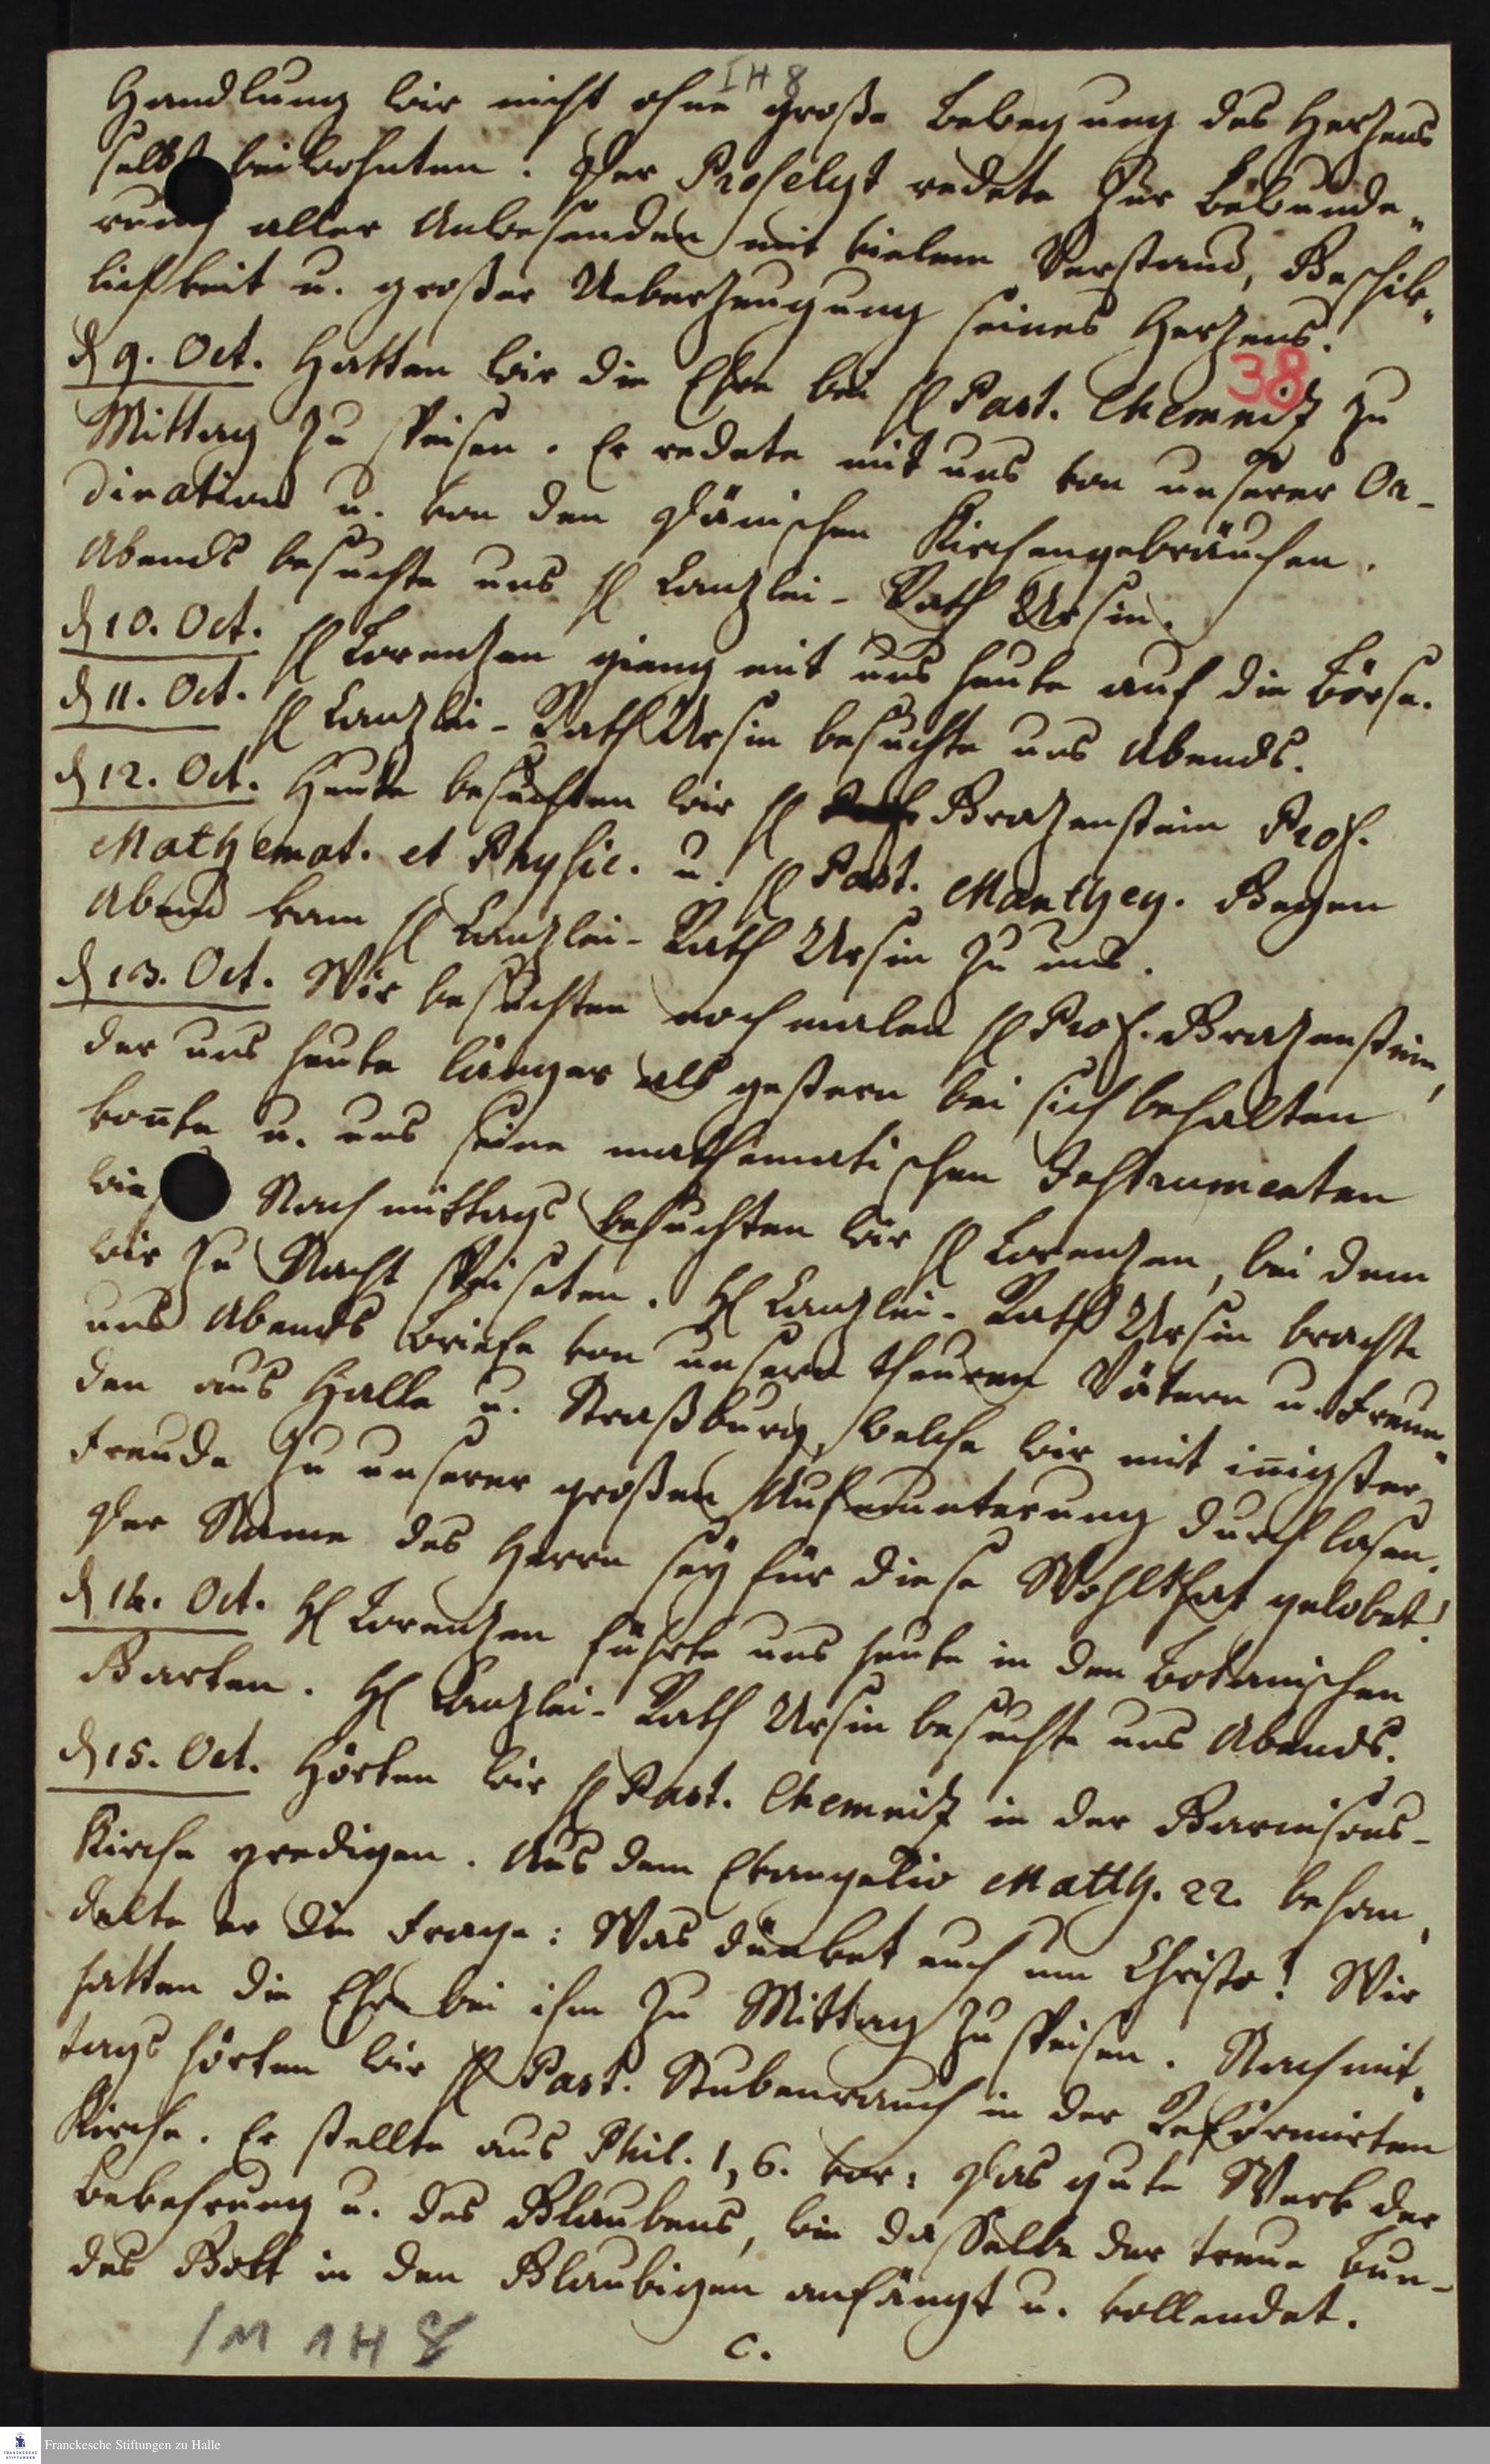 I H 8
Handlung wir nicht ohne große Bewegung des Herzens
selbst beiwohnten. Der Proselyt redete zur Bewunde„
rung aller Anwesenden mit vielem Verstand, Geschik„
lichkeit u. großer Ueberzeugung seines Herzens.
38
d 9. Oct. Hatten wir die Ehre bei H Past. Chemnitz zu
Mittag zu speisen. Er redete mit uns von unserer Or-
dination u. von den Dänischen Kirchengebräuchen.
Abends besuchte uns H Canzlei-Rath Ursin.
d 10. Oct. H Lorenzen gieng mit uns heute auf die Börse.
d 11. Oct. H Canzlei-Rath Ursin besuchte uns Abends.
d 12. Oct. Heute besuchten wir H Grazenstein Prof.
Mathemat. et Physic. u. H Past. Manthey. Gegen
Abend kam H Canzlei-Rath Ursin zu uns.
d 13. Oct. Wir besuchten nochmalen H Prof. Grazenstein,
der uns heute länger als gestern bei sich behalten
kon̄te u. uns seine mathematischen Instrumenten
wies Nachmittags besuchten wir H Lorenzen, bei dem
wir zu Nacht speiseten. H Canzlei-Rath Ursin brachte
uns Abends Briefe von unsern theuren Vätern u. Freun„
den aus Halle u. Straßburg, welche wir mit in̄igster
Freude zu unserer großen Aufmunterung durchlasen.
Der Name des Herrn sey für diese Wohlthat gelobet!
d 14. Oct. H Lorenzen führte uns heute in den Botanischen
Garten. H Canzlei-Rath Ursin besuchte uns Abends.
d 15. Oct. Hörten wir H Past. Chemnitz in der Garnisons-
Kirche predigen. Aus dem Evangelio Matth. 22. behan„
delte er die Frage: Was dünket euch um Christo! Wir
hatten die Ehre bei ihm zu Mittag zu speisen. Nachmit„
tags hörten wir H Past. Stubenrauch in der Reformirten
Kirche. Er stellte aus Phil. 1, 6. vor: Das gute Werk der
Bekehrung u. des Glaubens, wie dasselbe der treue Bun-
des Gott in den Glaubigen anfängt u. vollendet.
c.
1M 1H 8
Franckesche Stiftungen zu Halle